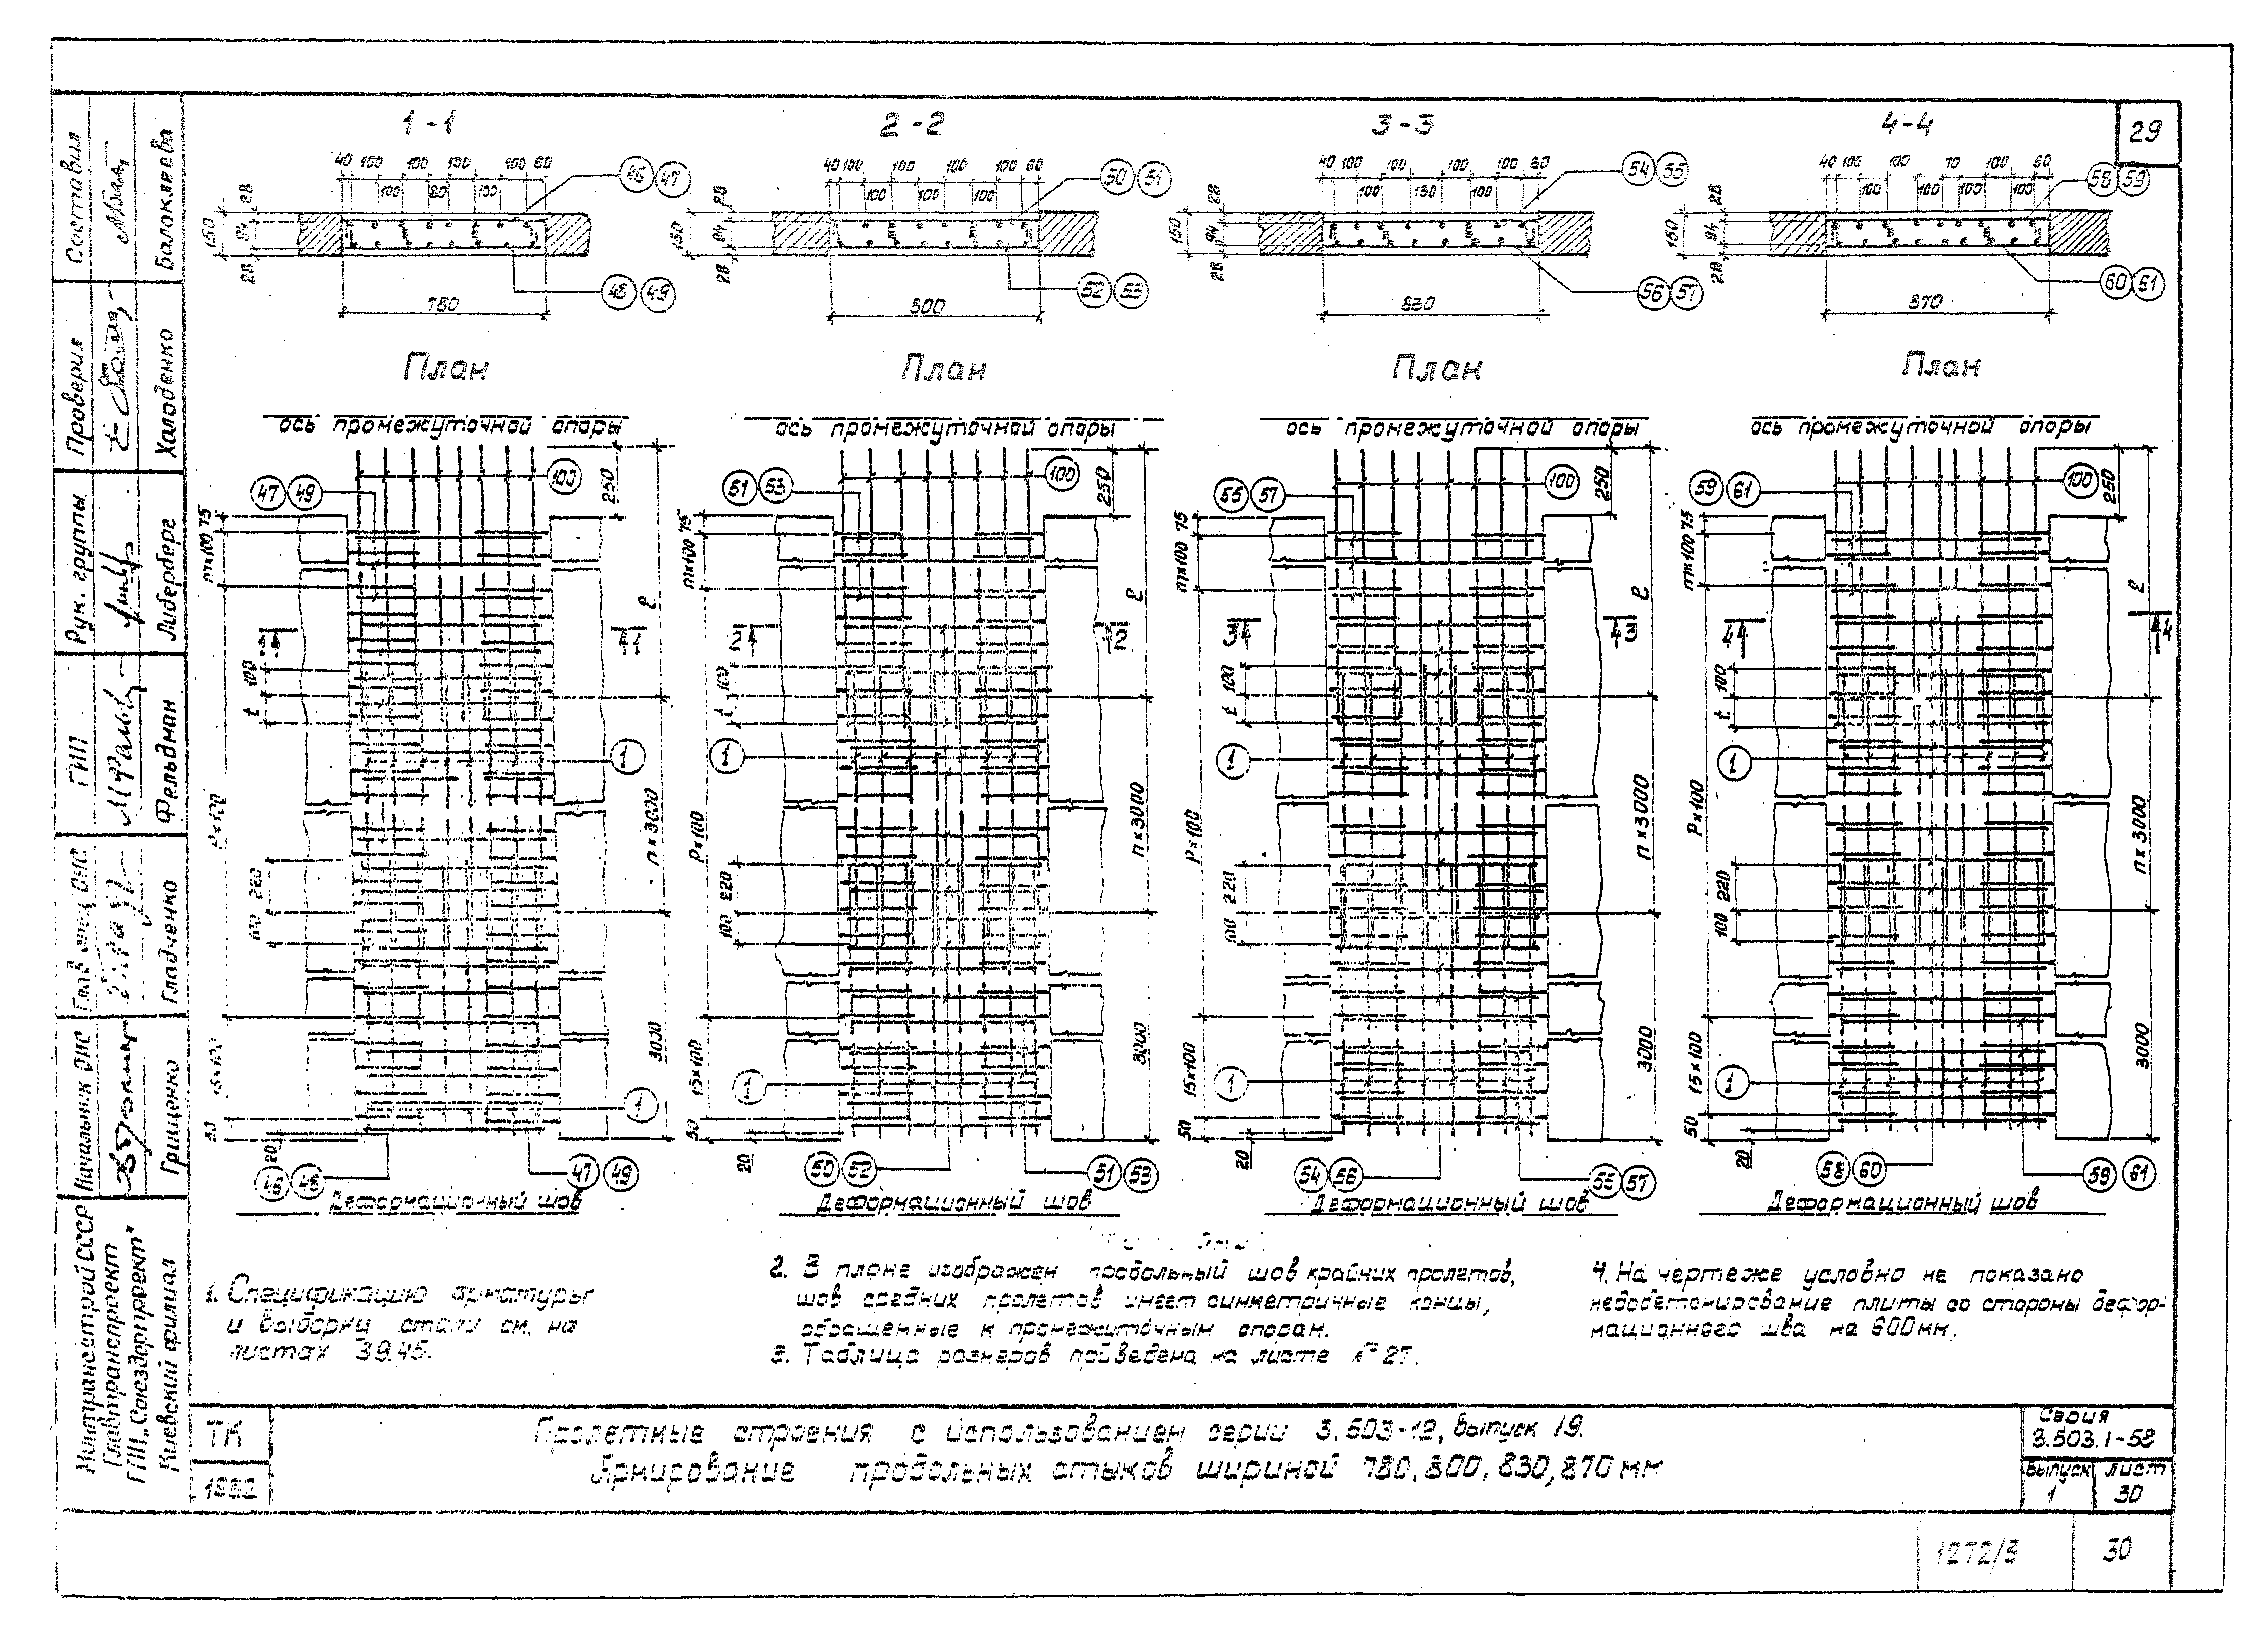 29
1-1
2-2
3-3
4-4
40 100 100 100 100 60
100 80 100
40 100 100 100 100 60
100 100 100
40 100 100 100 100 60
100 130 100
40 100 100 70 100 60
100 100 100 100
46 47
50 51
54 55
58 59
28
150
94
28
28
150
94
28
28
150
94
28
28
150
94
28
48 49
52 53
56 57
60 61
780
800
830
870
План
План
План
План
ось промежуточной опоры
ось промежуточной опоры
ось промежуточной опоры
ось промежуточной опоры
47 49
100
250
51 53
100
250
55 57
100
250
59 61
100
250
75
m×100
75
m×100
75
m×100
75
m×100
ℓ
ℓ
ℓ
ℓ
1 1
2 2
3 3
4 4
100
t
100
t
100
t
100
t
1
1
1
1
P×100
P×100
P×100
P×100
n×3000
n×3000
n×3000
n×3000
220
100
220
100
220
100
220
100
15×100
15×100
15×100
15×100
3000
3000
3000
3000
1
1
1
1
50
20
50
20
50
20
50
20
46 48
47 49
50 52
51 53
54 56
55 57
58 60
59 61
Деформационный шов
Деформационный шов
Деформационный шов
Деформационный шов
1. Спецификацию арматуры
и выборку стали см. на
листах 39,45.
2. В плане изображен продольный шов крайних пролетов,
шов средних пролетов имеет симметричные концы,
обращенные к промежуточным опорам.
3. Таблица размеров приведена на листе № 27.
4. На чертеже условно не показано
недобетонирование плиты со стороны дефор-
мационного шва на 600мм.
ТК
1982
Пролетные строения с использованием серии 3.503-12, выпуск 19.
Армирование продольных стыков шириной 780, 800, 830, 870 мм
Серия
3.503.1-58
Выпуск
1
лист
30
1272/3
30
Составил
Балаклеева
Проверил
Халоденко
Рук. группы
Лидерберг
ГИП
Фельдман
Глав. спец. ОИС
Гладченко
Начальник ОИС
Гриценко
Минтрансстрой СССР
Главтранспроект
ГПИ „Союздорпроект"
Киевский филиал